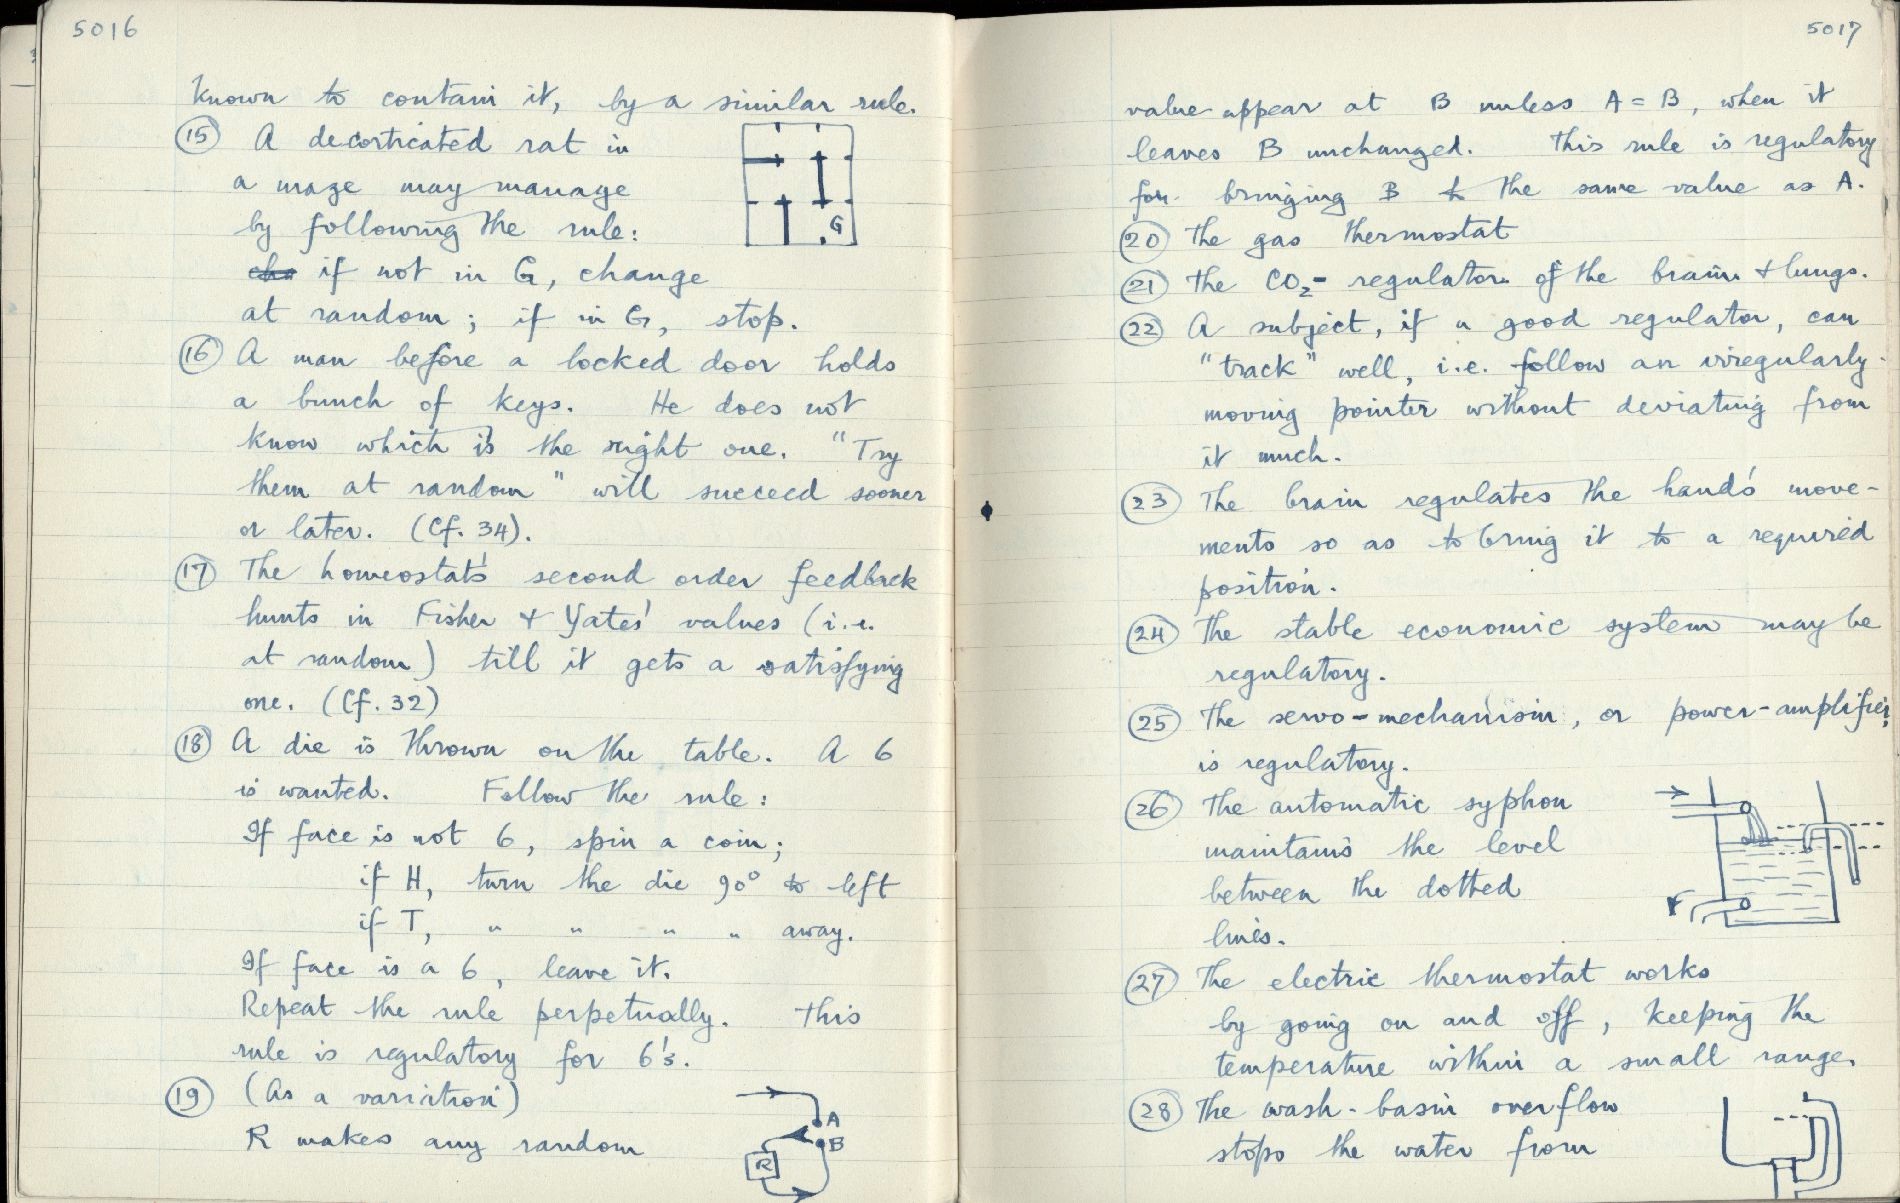 5016
known to contain it, by a similar rule.
15 A decorticated rat in
a maze may manage
by following the rule:
if not in G, change
at random; if in G, stop.
G
16 A man before a locked door holds
a bunch of keys. He does not
know which is the right one. "Try
them at random" will succeed sooner
or later. (Cf. 34).
17 The homeostat's second order feedback
hunts in Fisher & Yates' values (i.e.
at random) till it gets a satisfying
one. (Cf. 32)
18 A die is thrown on the table. A 6
is wanted. Follow the rule:
If face is not 6, spin a coin;
if H, turn the die 90° to left
if T, " " " " away.
If face is a 6, leave it.
Repeat the rule perpetually. This
rule is regulatory for 6's.
19 (As a variation)
R makes any random
A
B
R
5017
value appear at B unless A = B, when it
leaves B unchanged. This rule is regulatory
for bringing B to the same value as A.
20 The gas thermostat
21 The CO2- regulator of the brain & lungs.
22 A subject, if a good regulator, can
"track" well, i.e. follow an irregularly-
moving pointer without deviating from
it much.
23 The brain regulates the hand's move-
ments so as to bring it to a required
position.
24 The stable economic system may be
regulatory.
25 The servo-mechanism, or power-amplifier,
is regulatory.
26 The automatic syphon
maintains the level
between the dotted
lines.
27 The electric thermostat works
by going on and off, keeping the
temperature within a small range.
28 The wash-basin overflow
stops the water from